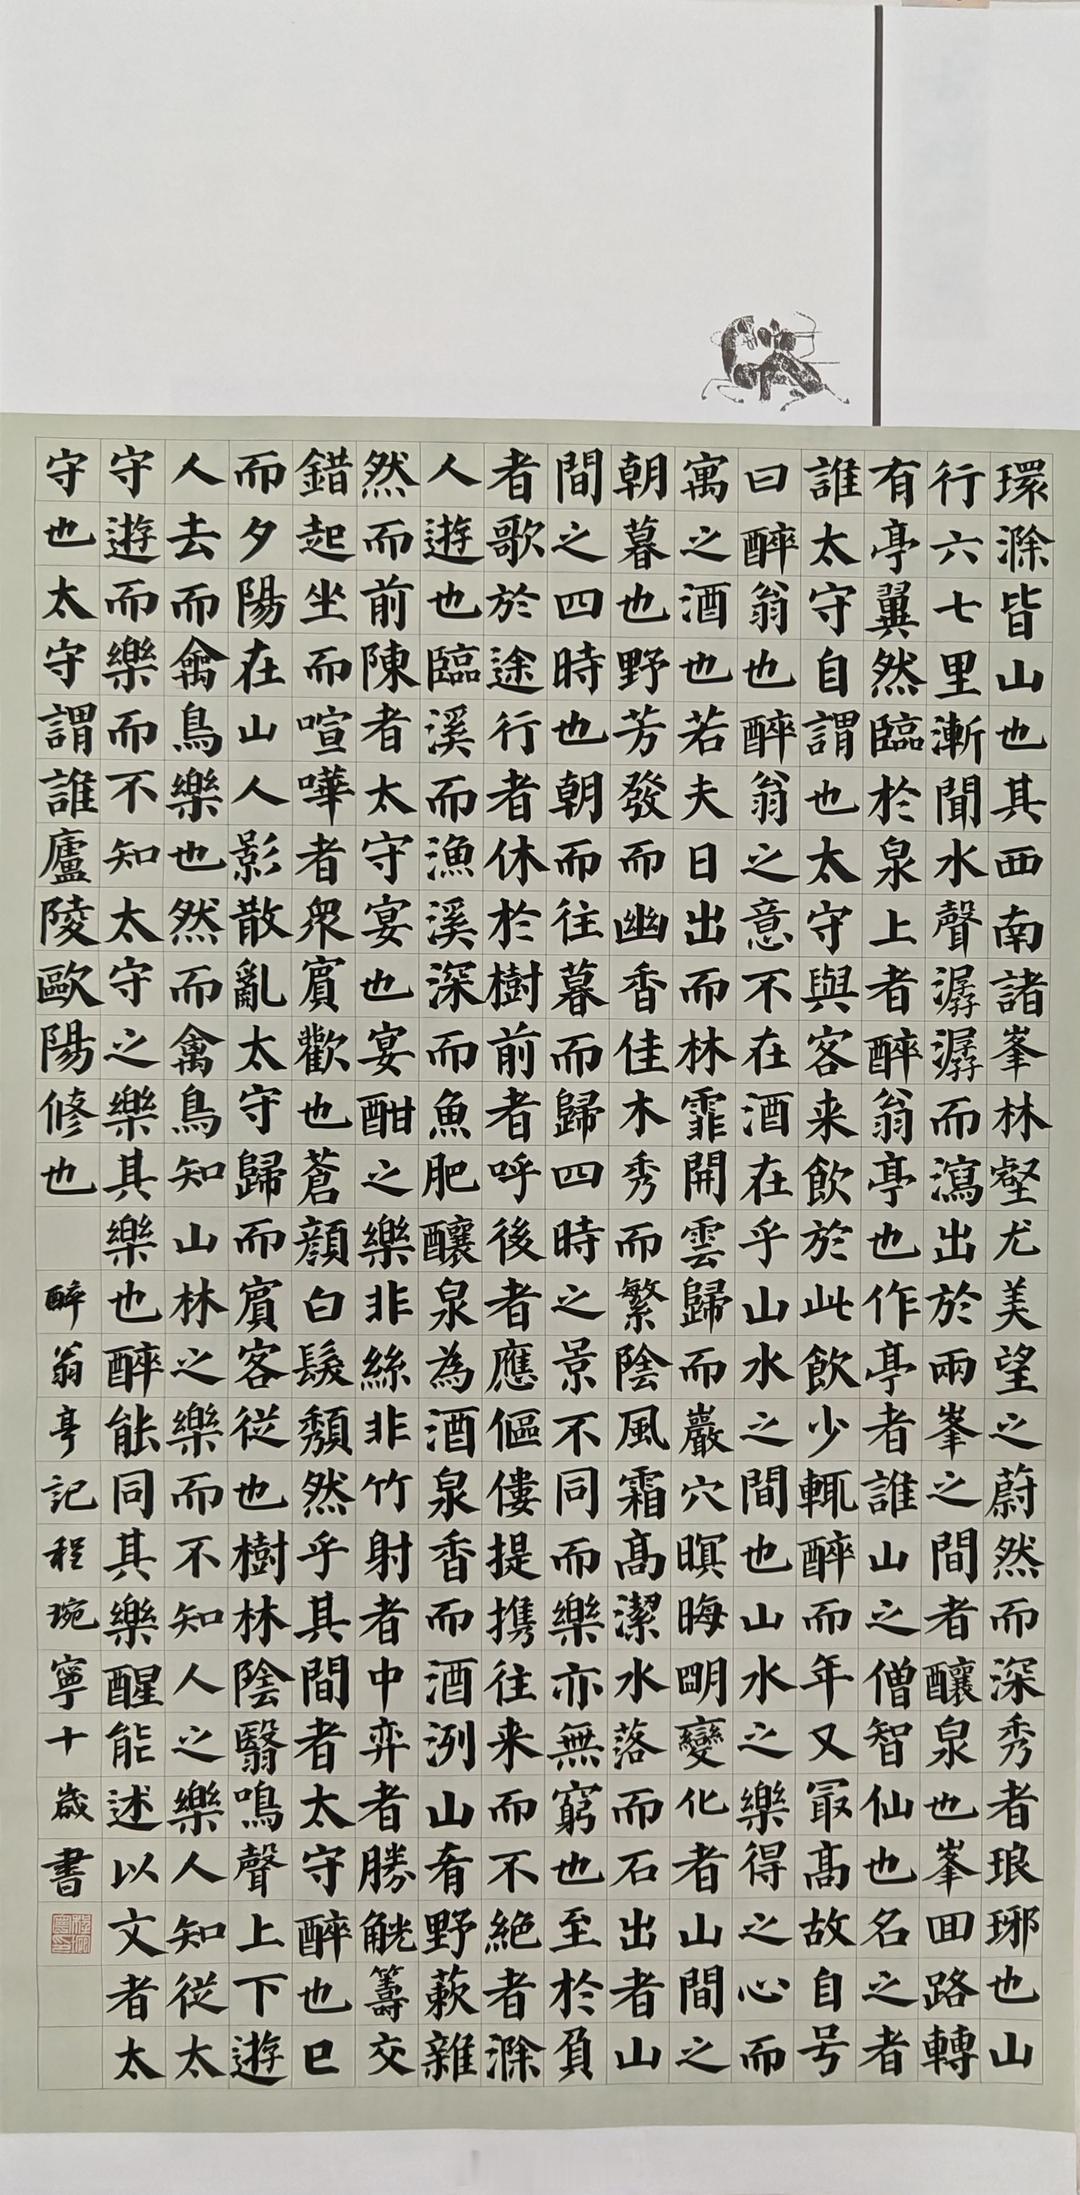 環滁皆山也其西南諸峯林壑尤美望之蔚然而深秀者琅琊也山
行六七里漸聞水聲潺潺而瀉出於兩峯之間者釀泉也峯回路轉
有亭翼然臨於泉上者醉翁亭也作亭者誰山之僧智仙也名之者
誰太守自謂也太守與客来飲於此飲少輒醉而年又冣髙故自号
曰醉翁也醉翁之意不在酒在乎山水之間也山水之樂得之心而
寓之酒也若夫日出而林霏開雲歸而巖穴暝晦明變化者山間之
朝暮也野芳發而幽香佳木秀而繁陰風霜髙潔水落而石出者山
間之四時也朝而往暮而歸四時之景不同而樂亦無窮也至於負
者歌於途行者休於樹前者呼後者應傴僂提携往来而不絶者滁
人遊也臨溪而漁溪深而魚肥釀泉為酒泉香而酒洌山肴野蔌雜
然而前陳者太守宴也宴酣之樂非絲非竹射者中弈者勝觥籌交
錯起坐而喧嘩者衆賓歡也蒼顔白髮頽然乎其間者太守醉也已
而夕陽在山人影散亂太守歸而賓客從也樹林陰翳鳴聲上下遊
人去而禽鳥樂也然而禽鳥知山林之樂而不知人之樂人知從太
守遊而樂而不知太守之樂其樂也醉能同其樂醒能述以文者太
守也太守謂誰廬陵歐陽修也 醉翁亭記程琬寧十歲書